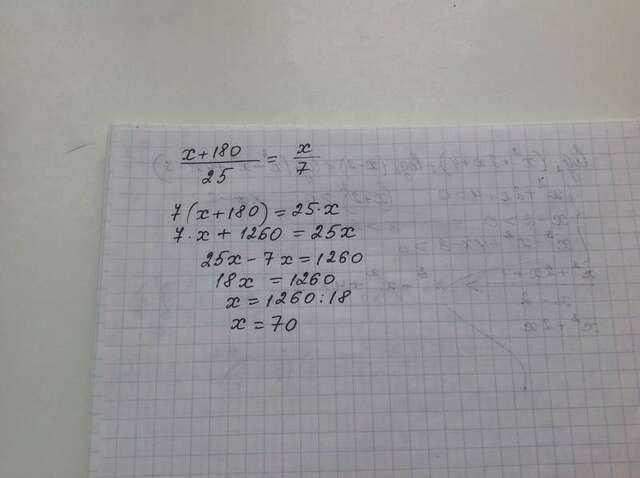 x+180/25 = x/7
7(x+180)=25·x
7·x+1260=25x
25x-7x=1260
18x=1260
x=1260:18
x=70